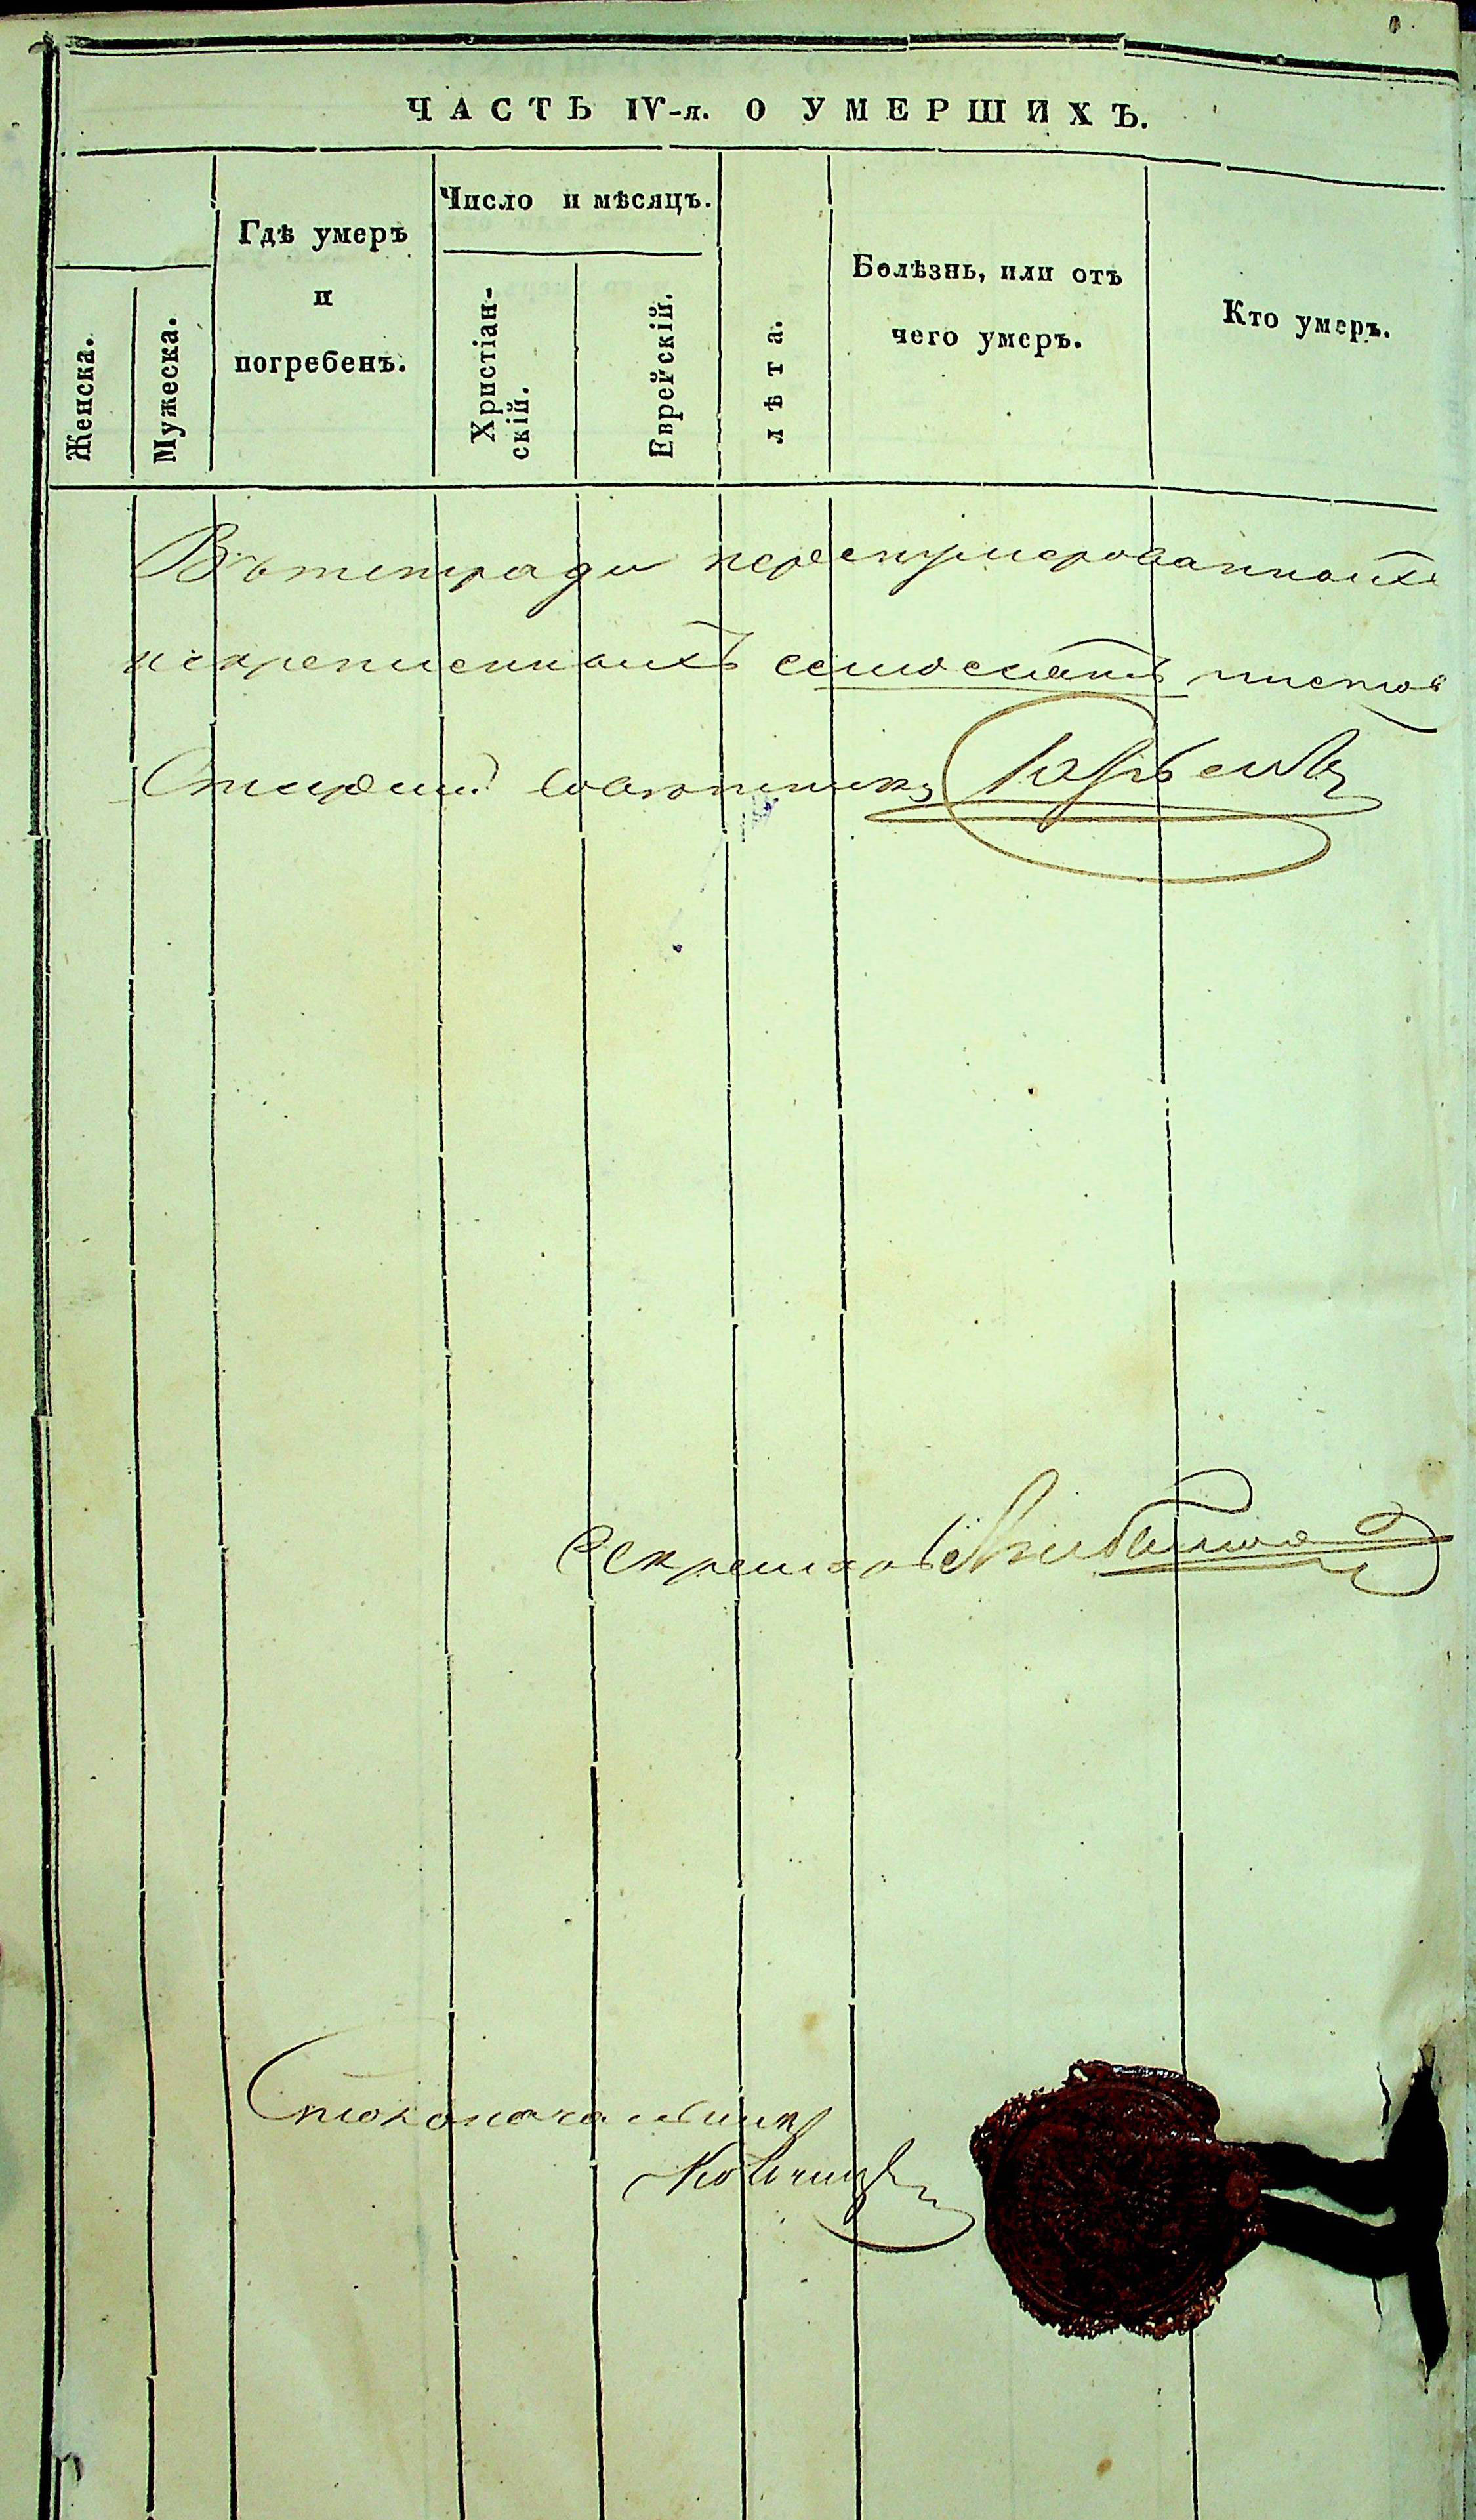 ЧАСТЬ IV-я. О УМЕРШИХЪ.
Женска.
Мужеска.
Гдѣ умеръ
и
погребенъ.
Число и мѣсяцъ.
Христіан-
скій.
Еврейскій.
лѣта.
Болѣзнь, или отъ
чего умеръ.
Кто умеръ.
Въ тетради перенумерованныхъ
и скрепленныхъ листовъ
Старшій Совѣтникъ
Секретарь
Столоначальникъ